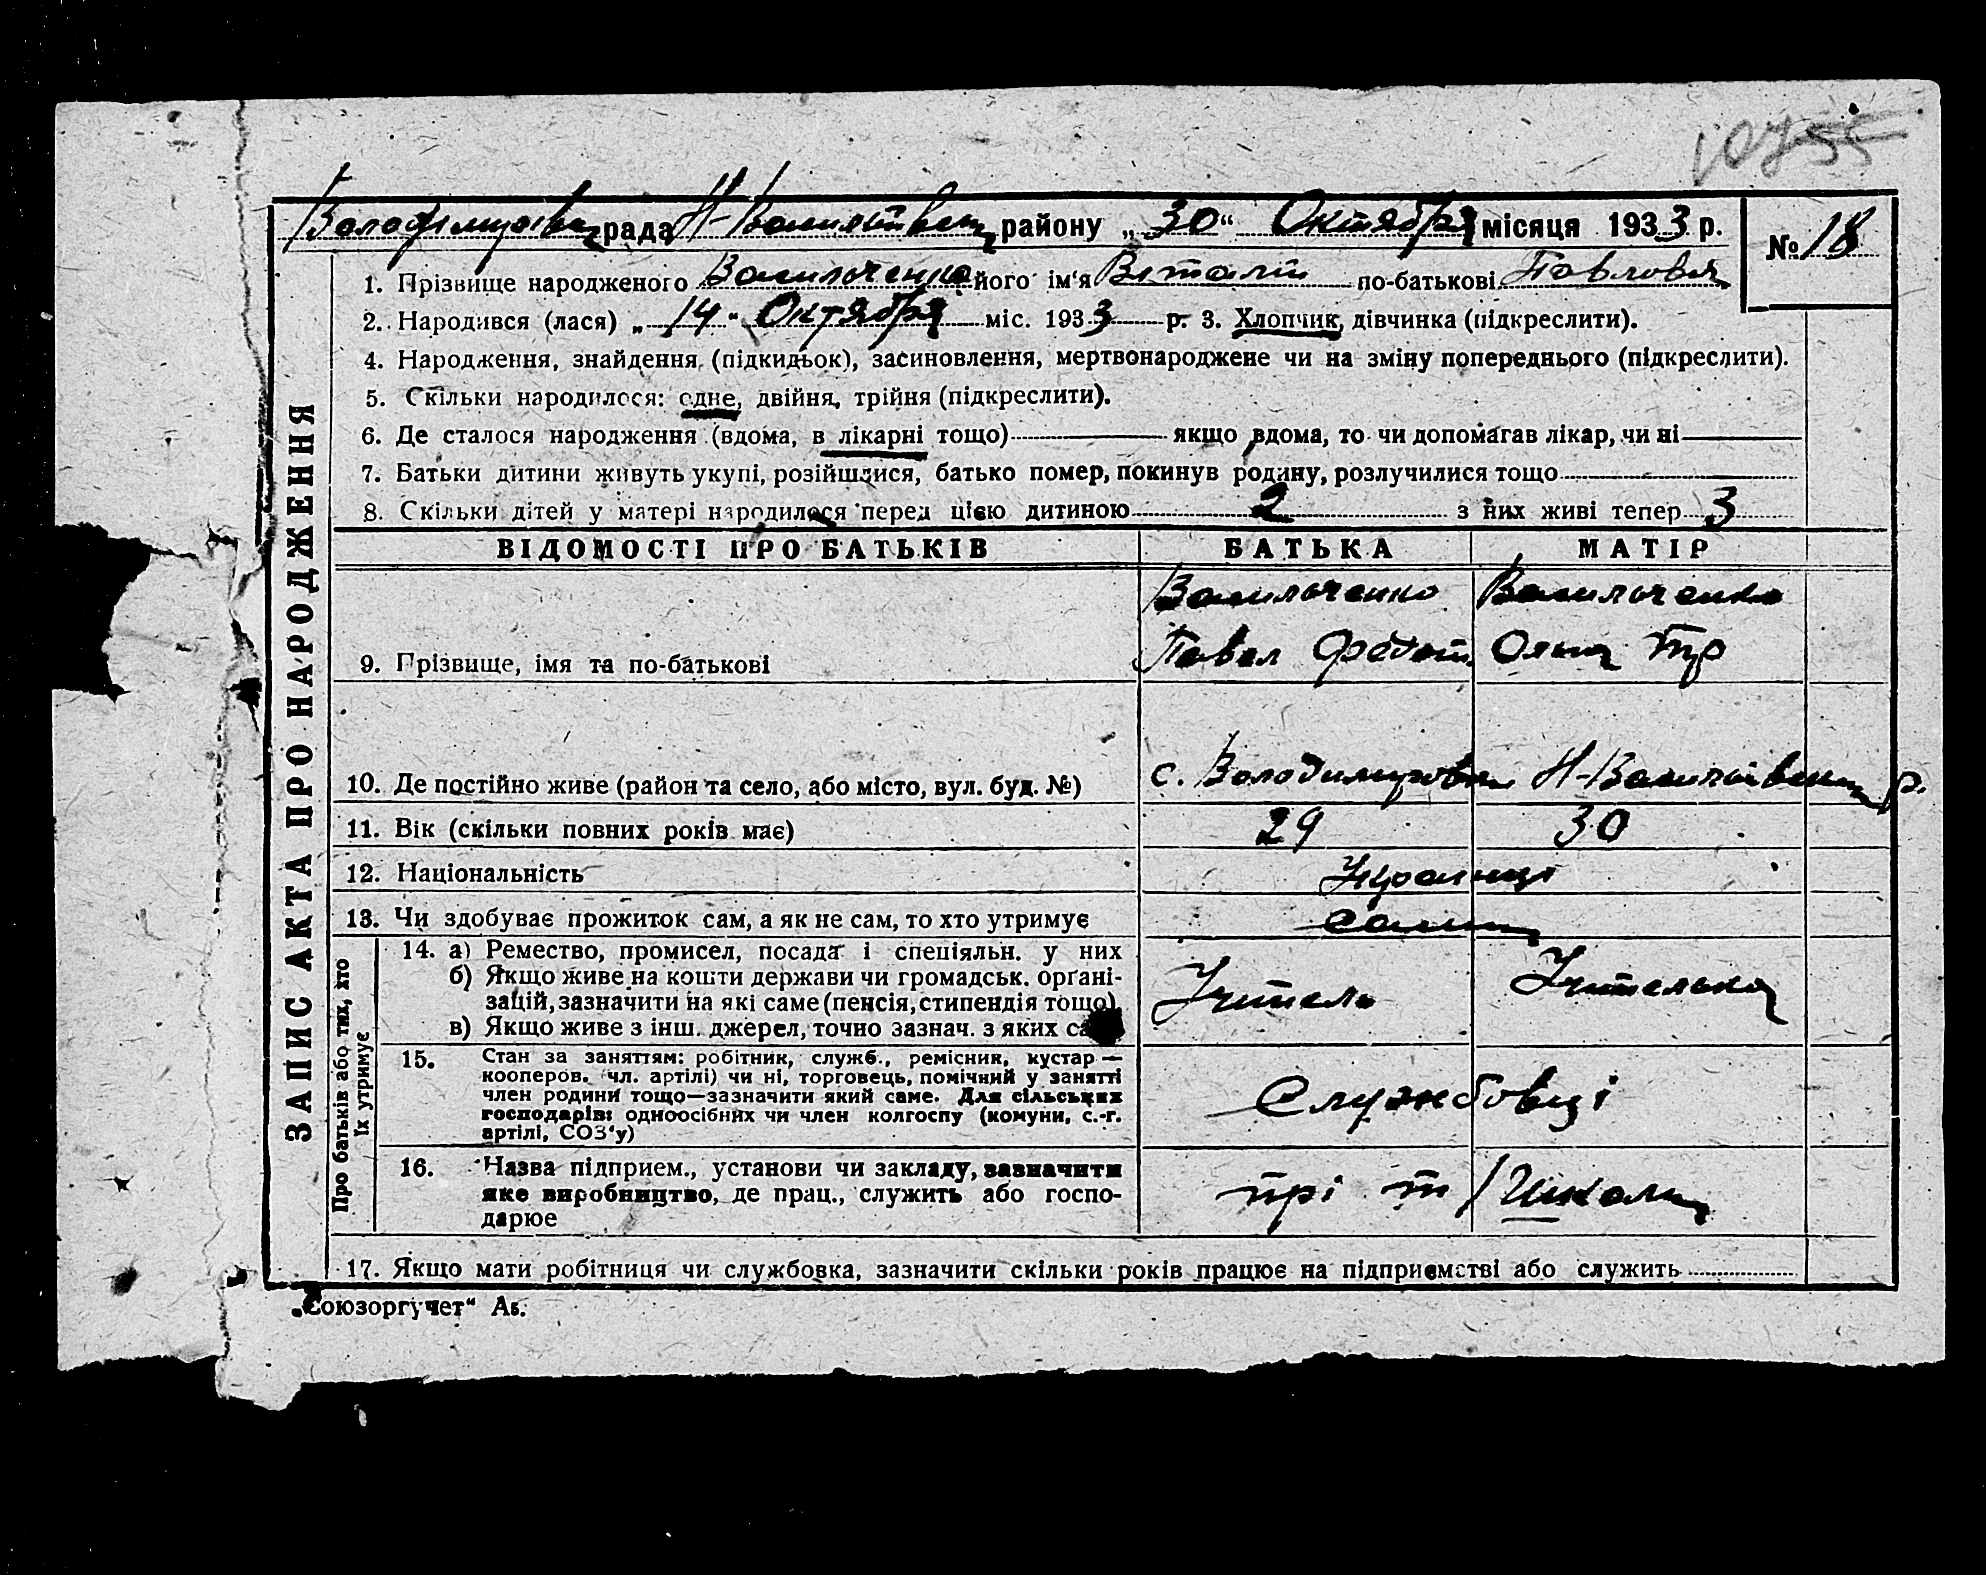 10755
Володимирівка рада Н-Василівськ району „30“ Октября місяця 1933 р. № 18
1. Прізвище народженого Васильченко його ім‘я Віталій по-батькові Павлович
2. Народився (лася) „14“ Октября міс. 1933 р. 3. Хлопчик, дівчинка (підкреслити).
4. Народження, знайдення (підкидьок), засиновлення, мертвонароджене чи на зміну попереднього (підкреслити).
5. Скільки народилося: одне, двійня, трійня (підкреслити).
6. Де сталося народження (вдома, в лікарні тощо) якщо вдома, то чи допомагав лікар, чи ні
7. Батьки дитини живуть укупі, розійшлися, батько помер, покинув родину, розлучилися тощо
8. Скільки дітей у матері народилося перед цією дитиною 2 з них живі тепер 3
ЗАПИС АКТА ПРО НАРОДЖЕННЯ
ВІДОМОСТІ ПРО БАТЬКІВ БАТЬКА МАТІР
Васильченко Васильченко
9. Прізвище, імя та по-батькові Павел Федот. Ольга
10. Де постійно живе (район та село, або місто, вул. буд. №) с. Володимировка р.
11. Вік (скільки повних років має) 29 30
12. Національність Українці
13. Чи здобуває прожиток сам, а як не сам, то хто утримує сами
Про батьків або тих, хто їх утримує
14. а) Ремество, промисел, посада і спеціяльн. у них
б) Якщо живе на кошти держави чи громадськ. органі-
зацій, зазначити на які саме (пенсія, стипендія тощо) Учитель Учителька
в) Якщо живе з інш. джерел, точно зазнач. з яких
15. Стан за заняттям: робітник, служб., ремісник, кустар —
кооперов. чл. артілі) чи ні, торговець, помічний у занятті
член родини тощо—зазначити який саме. Для сільських
господарів: одноосібних чи член колгоспу (комуни, с.-г.
артілі, СОЗ‘у) Службовці
16. Назва підприєм., установи чи закладу, зазначити
яке виробництво, де прац., служить або госпо-
дарює
17. Якщо мати робітниця чи службовка, зазначити скільки років працює на підприємстві або служить
„Союзоргучет“ Аб.